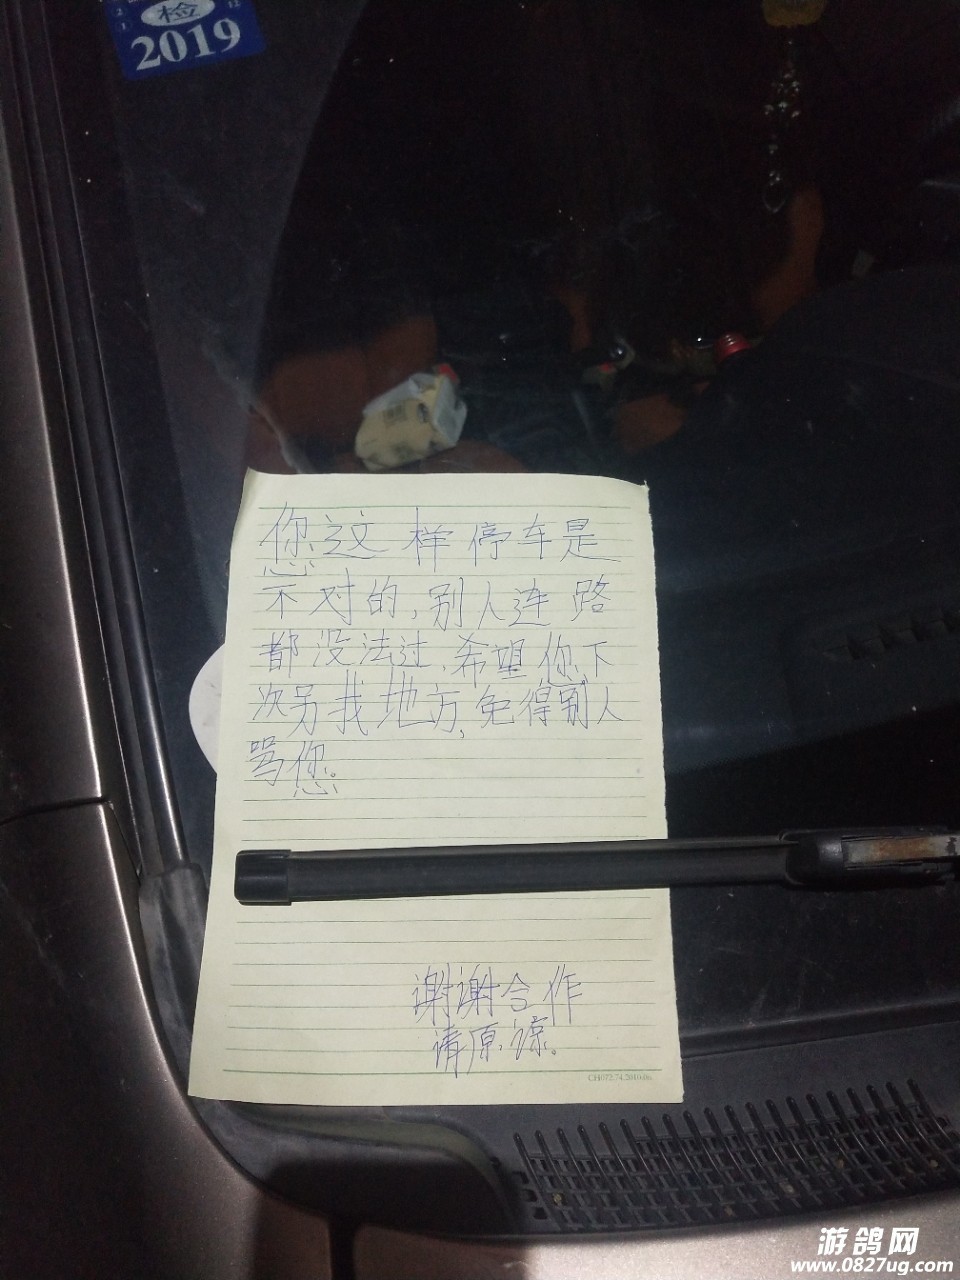 检
2019
您这样停车是
不对的,别人连路
都没法过,希望您下
次另找地方,免得别人
骂您。
谢谢合作
请原谅。
游鸽网
www.0827ug.com